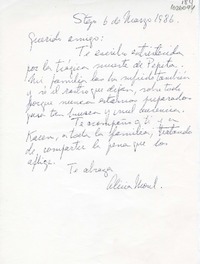 Stgo. 6 de Marzo 1986.
Querido amigo:
Te escribo entristecida
por la trágica muerte de Pepita.
Mi familia los ha sufrido también
y sí el rastro que dejan, sobre todo
porque nunca estamos preparados
para tan brusca y cruel
Te acompaño a ti y en
a toda la familia, tratando
de compartir la pena que los
aflige.
Te abraza